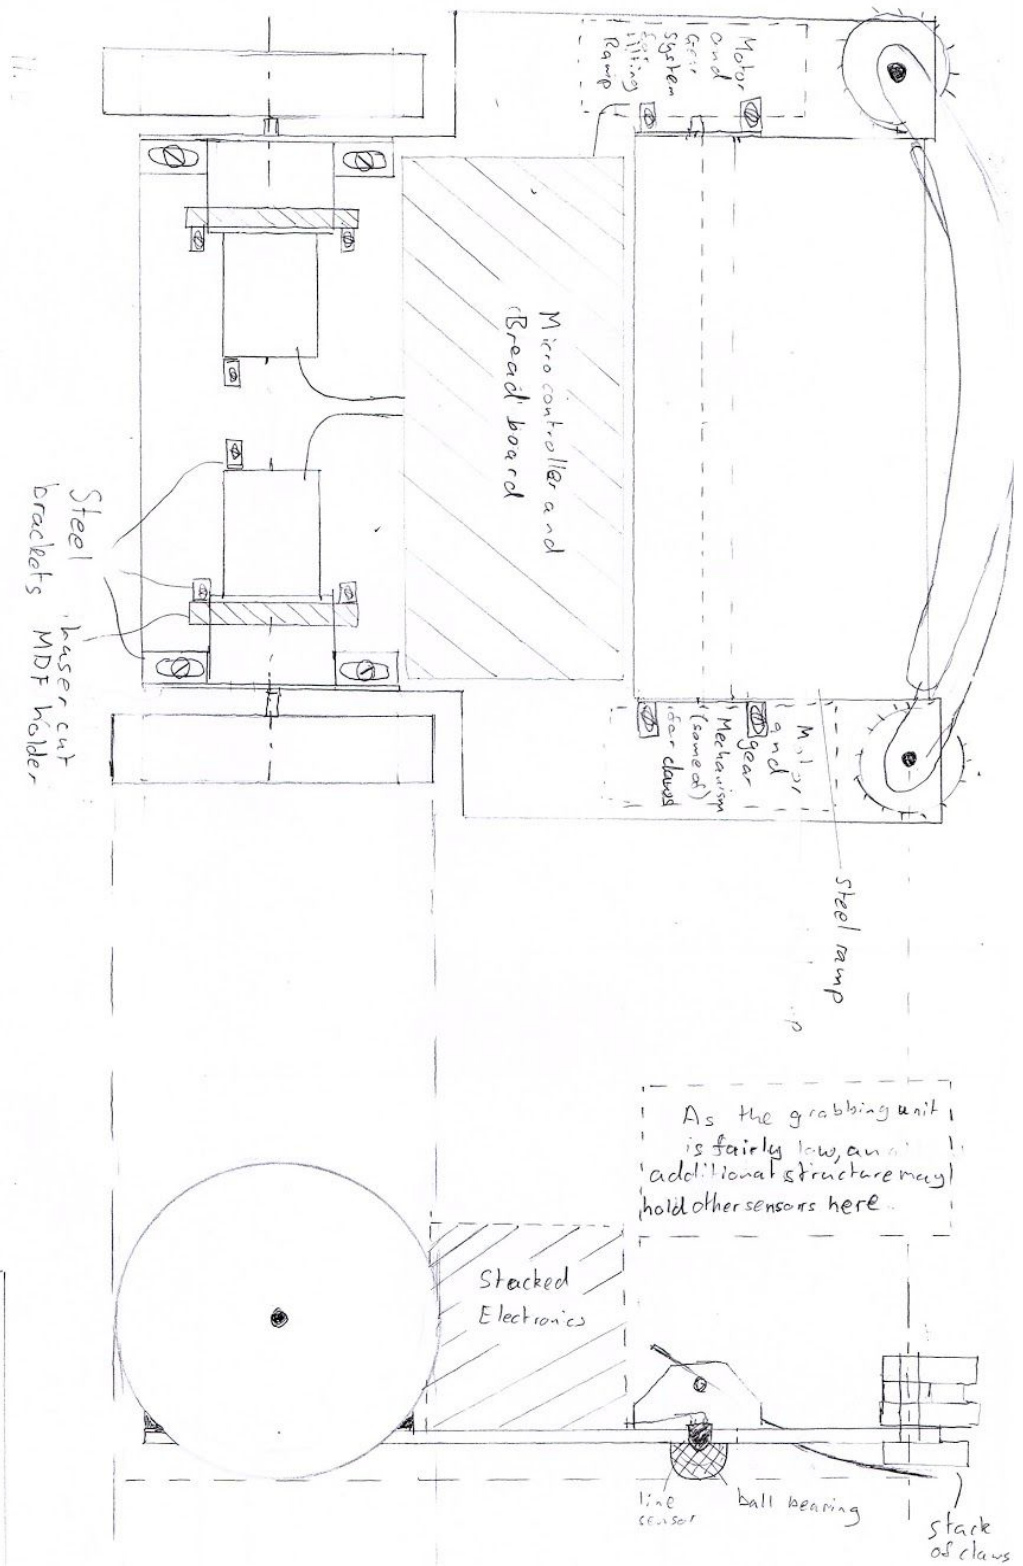 Motor
and
Gear
System
for
tilting
Ramp
Micro controller and
Bread board
Steel
brackets
Laser cut
MDF holder
Motor
and
gear
Mechanism
(some of)
for claws
Steel ramp
As the grabbing unit
is fairly low, an
additional structure may
hold other sensors here.
Stacked
Electronics
line
sensor
ball bearing
stack
of claws